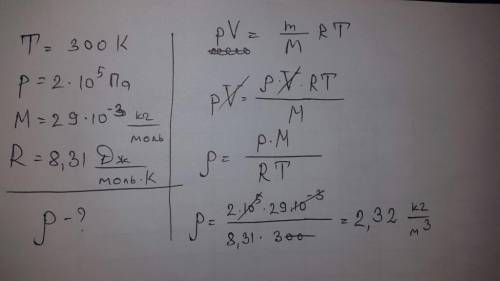 T = 300 К
p = 2 · 10⁵ Па
M = 29 · 10⁻³ кг/моль
R = 8,31 Дж/моль·К
ρ - ?
pV = m/M RT
pV = ρ·V·RT/M
ρ = p·M/RT
ρ = 2·10⁵·29·10⁻³/8,31·300 = 2,32 кг/м³